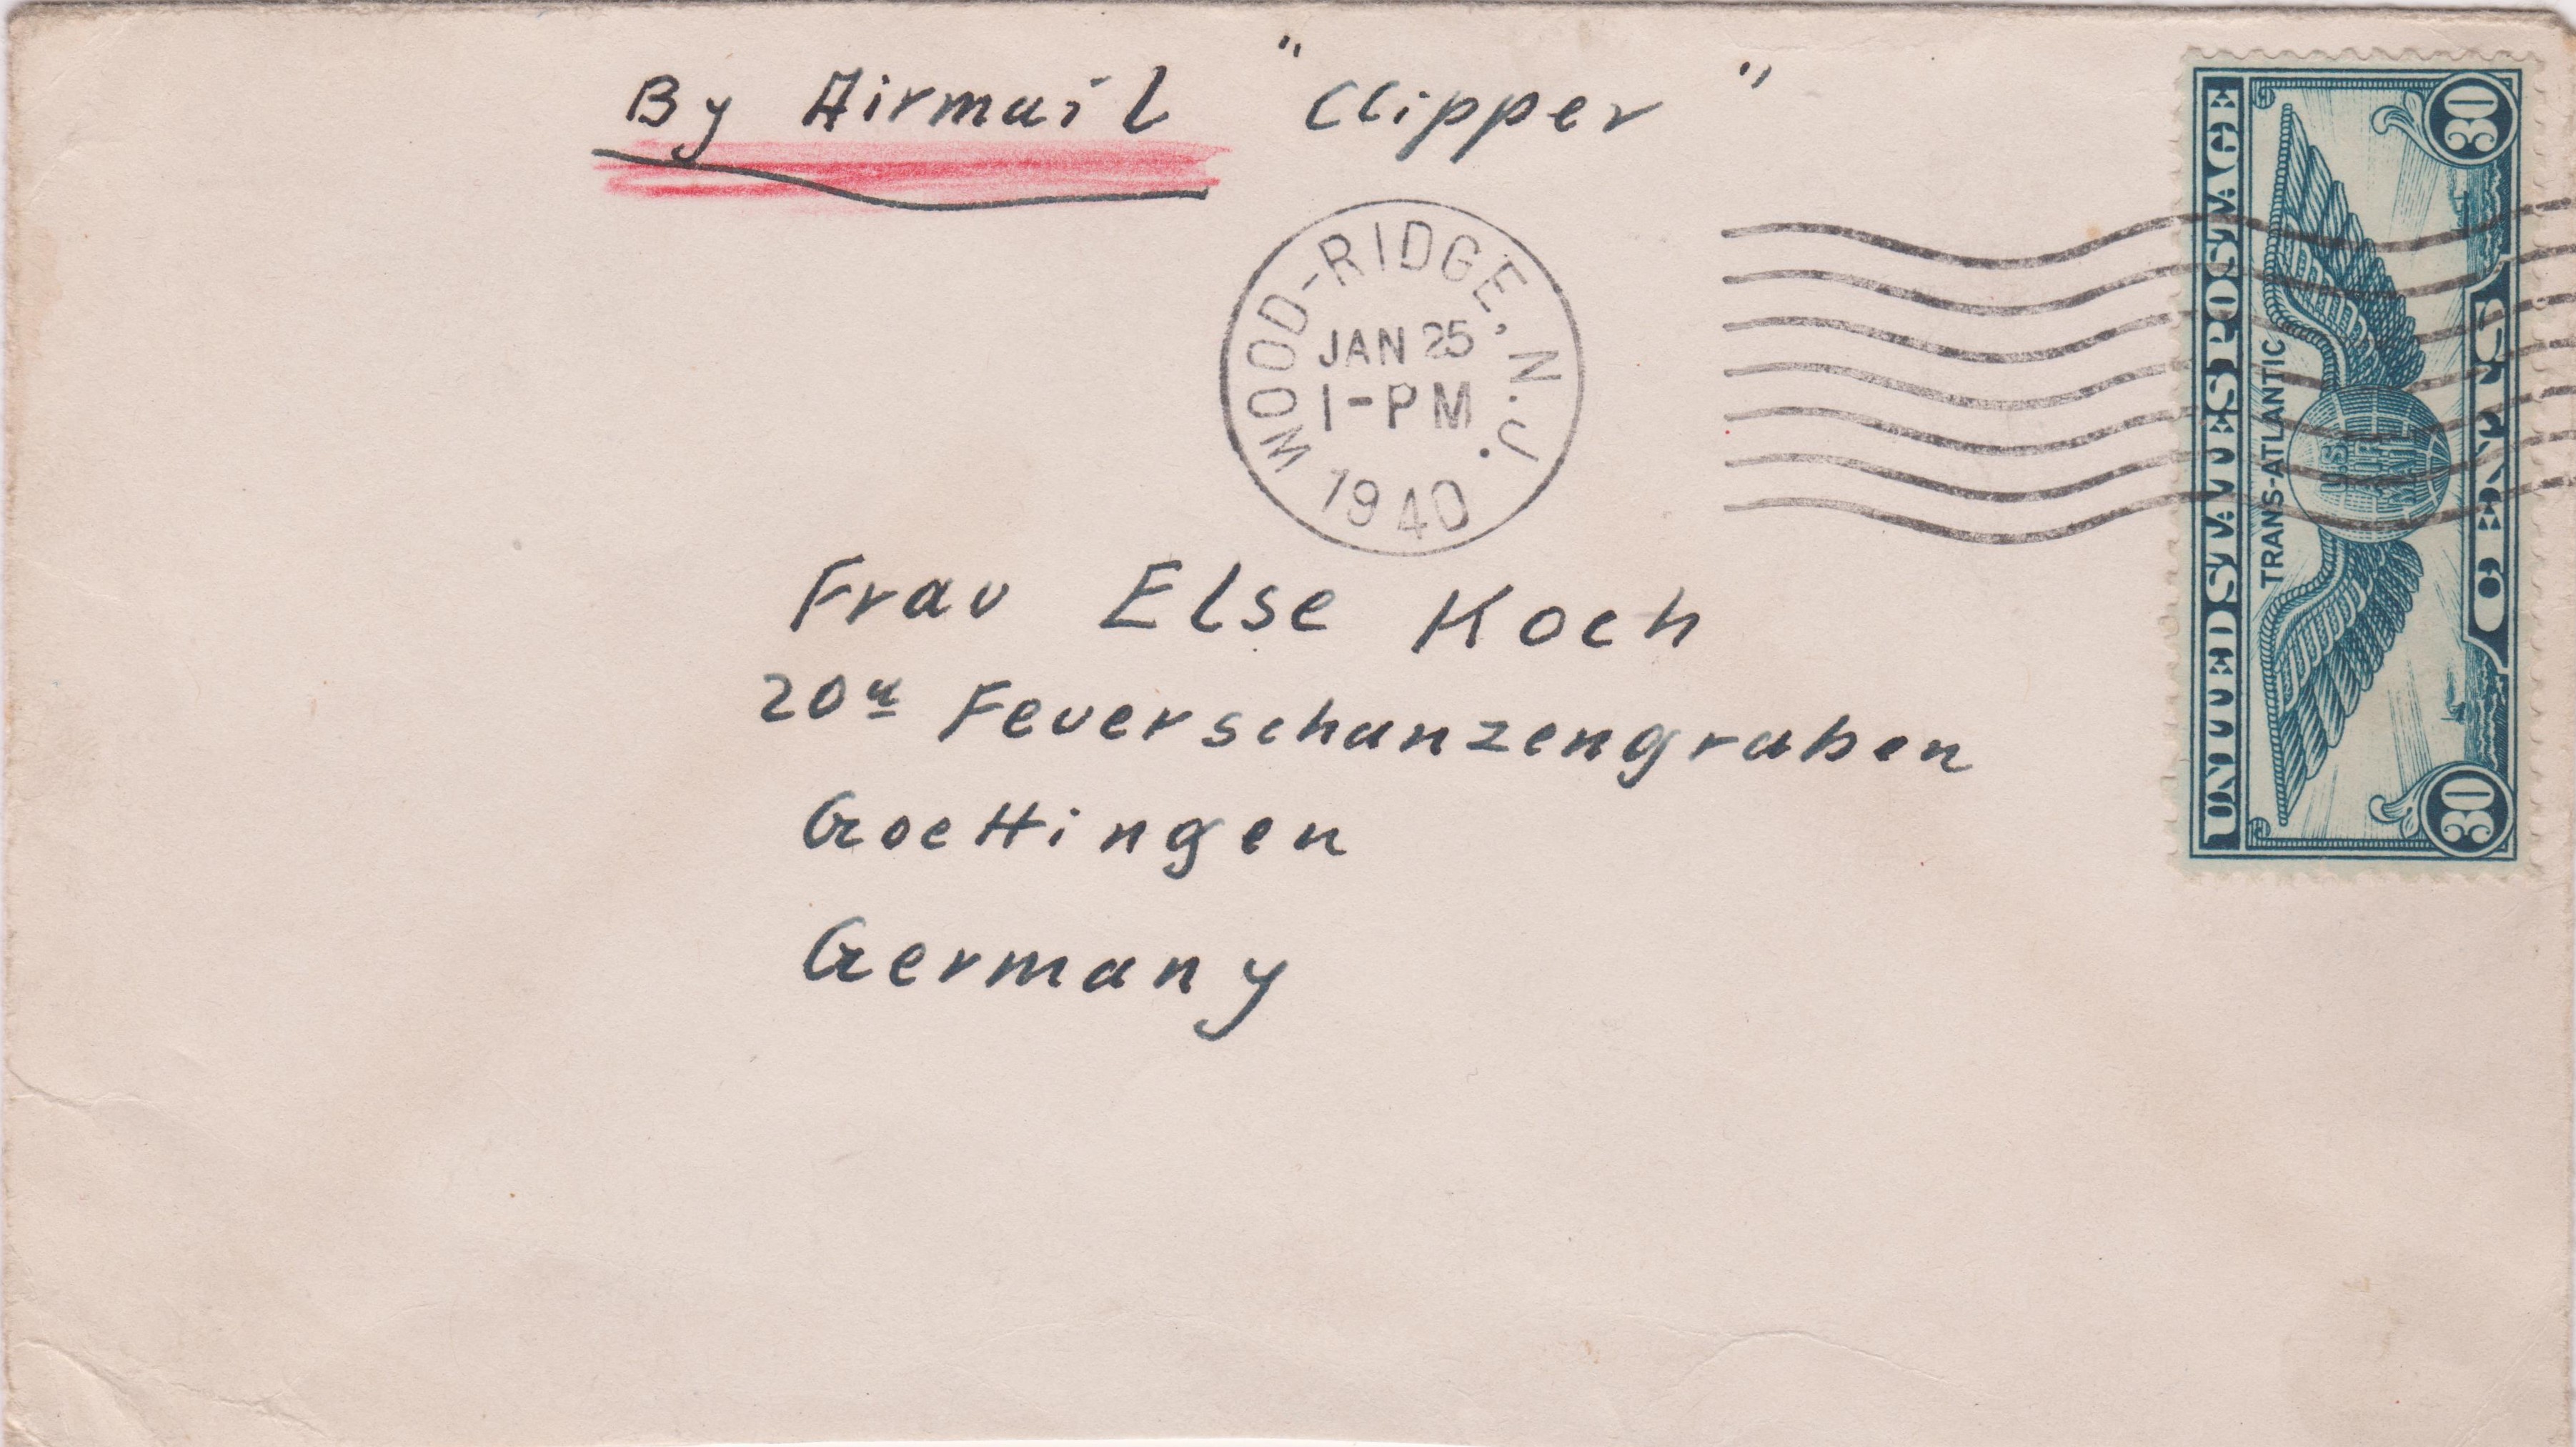 By Airmail "Clipper"
WOOD-RIDGE, N.J.
JAN 25
1-PM
1940
Frau Else Koch
20a Feuerschanzengraben
Goettingen
Germany
UNITED STATES POSTAGE
TRANS-ATLANTIC
U.S.
AIR
MAIL
30
CENTS
30